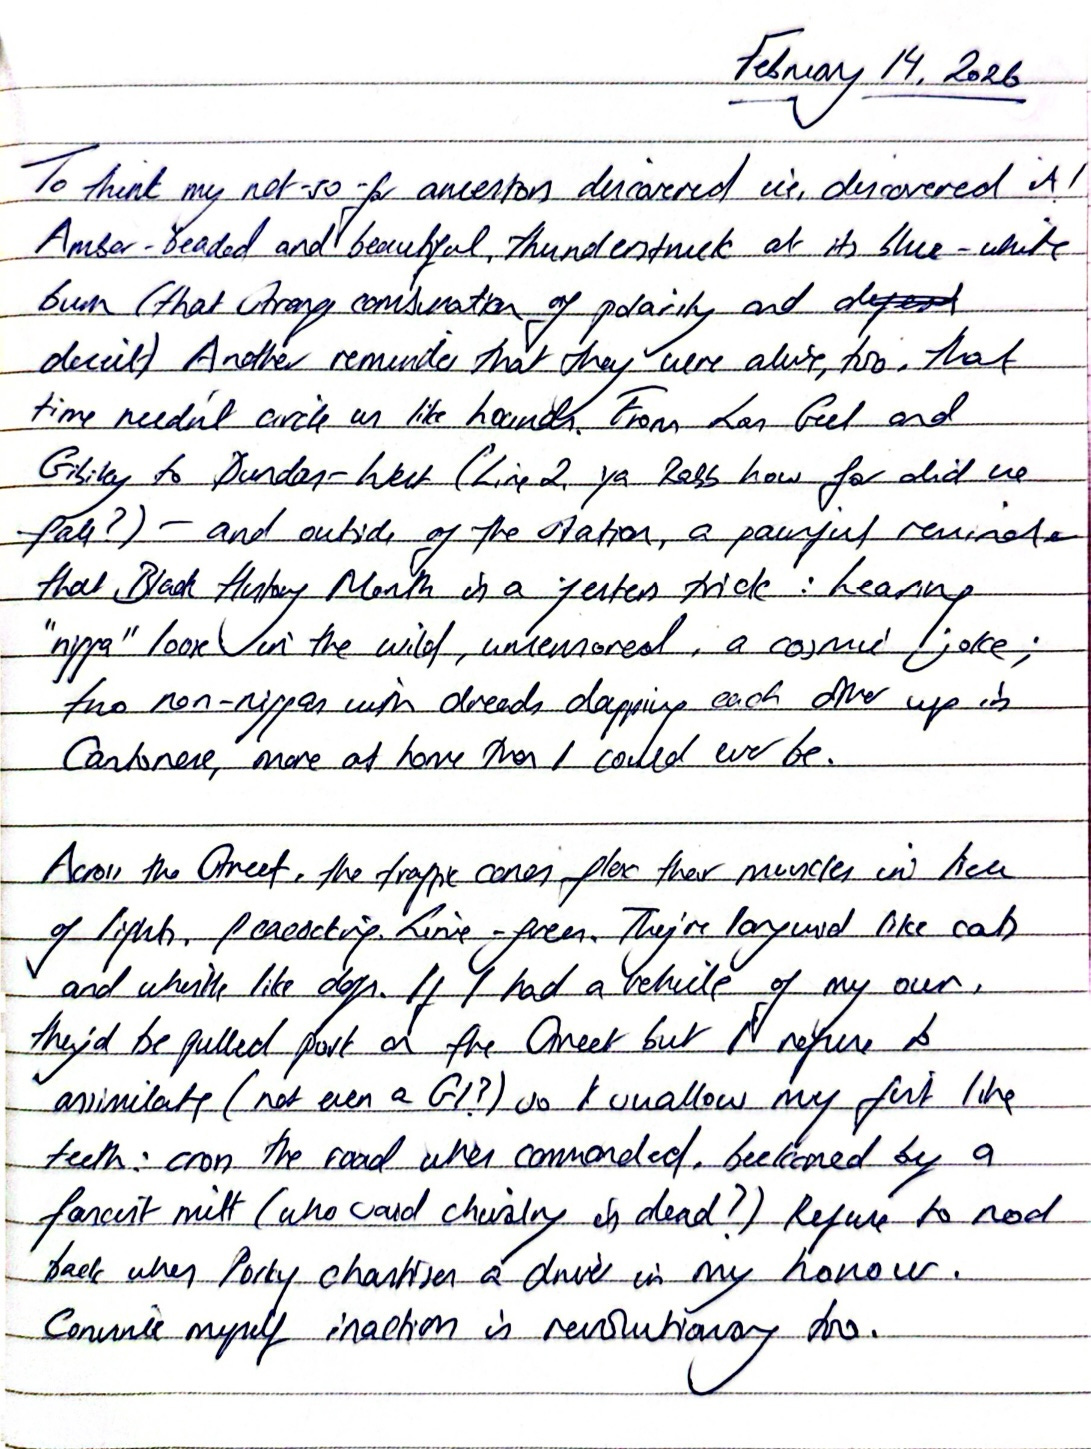 February 14, 2026
To think my not-so-far ancestors discovered ice, discovered it!
Amber-beaded and beautiful, thunderstruck at its blue-white
burn (that strange combination of polarity and
deceit) Another reminder that they were alive, too. That
time needn't circle us like hounds. From Las Geel and
Gibiley to Dundas-West (Line 2, ya Rabb how far did we
fall?) — and outside of the station, a painful reminder
that Black History Month is a jesters trick : hearing
"nigga" loose in the wild, uncensored, a cosmic joke;
two non-niggas with dreads dapping each other up in
Cantonese, more at home than I could ever be.
Across the street, the traffic cones flex their muscles in lieu
of lights. Peacocking. Lime-green. They're languid like cats
and whistle like dogs. If I had a vehicle of my own,
they'd be pulled past on the street but I refuse to
assimilate (not even a G1?) so I swallow my first like
teeth: cross the road when commanded, beckoned by a
fascist mitt (who said chivalry is dead?) Refuse to nod
back when Porky chastises a driver in my honour.
Convince myself inaction is revolutionary too.